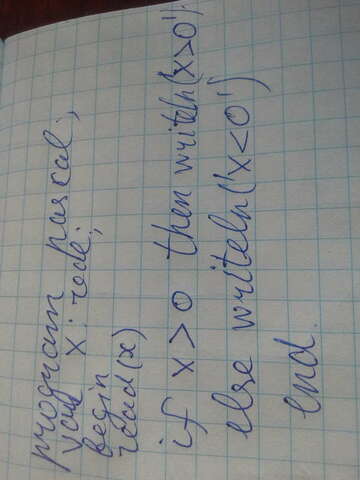 program pascal;
var x: real;
begin
read(x)
if x>0 then writeln('x>0')
else writeln('x<0')
end.